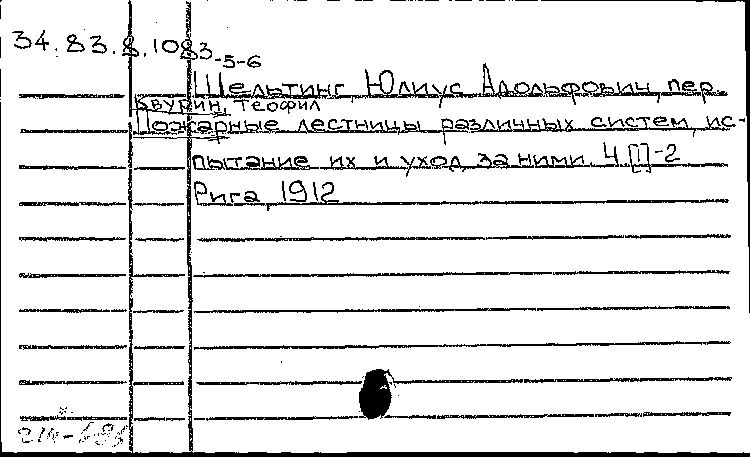 34.83.8.1083-5-6
Шельтинг, Юлиус Адольфович, пер.
Квурин, Теофил
Пожарные лестницы различных систем, ис-
пытание их и уход за ними. Ч.[1]-2
Рига, 1912